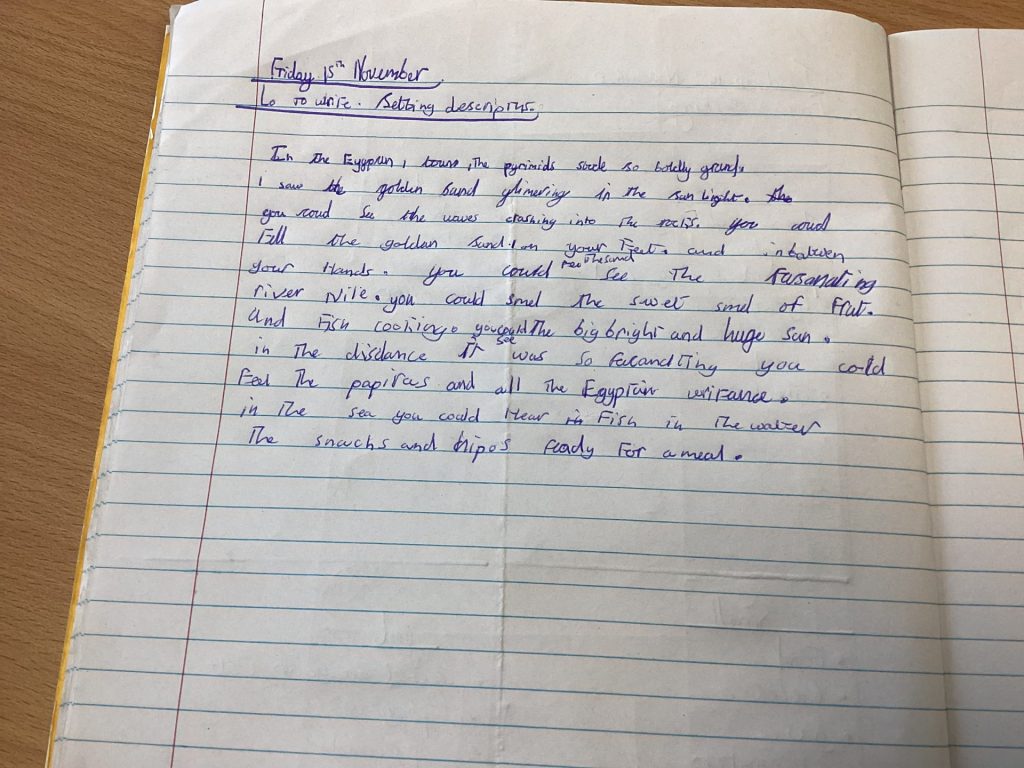 Friday 15th November
Lo To write. Setting descriptns.
In the Egyptun, toune, The pyrimids soode so boldly ground.
I saw the golden sand glimering in the sun bright. the
you coud See the waves crashing into The rocks. you coud
Fell the golden sand on your Feet. and inbatween
your Hands. you could feel the sand See The Fasanating
river Nile. you could smel the sweet smel of Frut.
And Fish cooking. you could see The big bright and huge Sun.
in The disdance It was So facanating you could
Feel The papiras and all The Egyptian
in The sea you could Hear in Fish in The watter
The snachs and hipos ready For a meal.